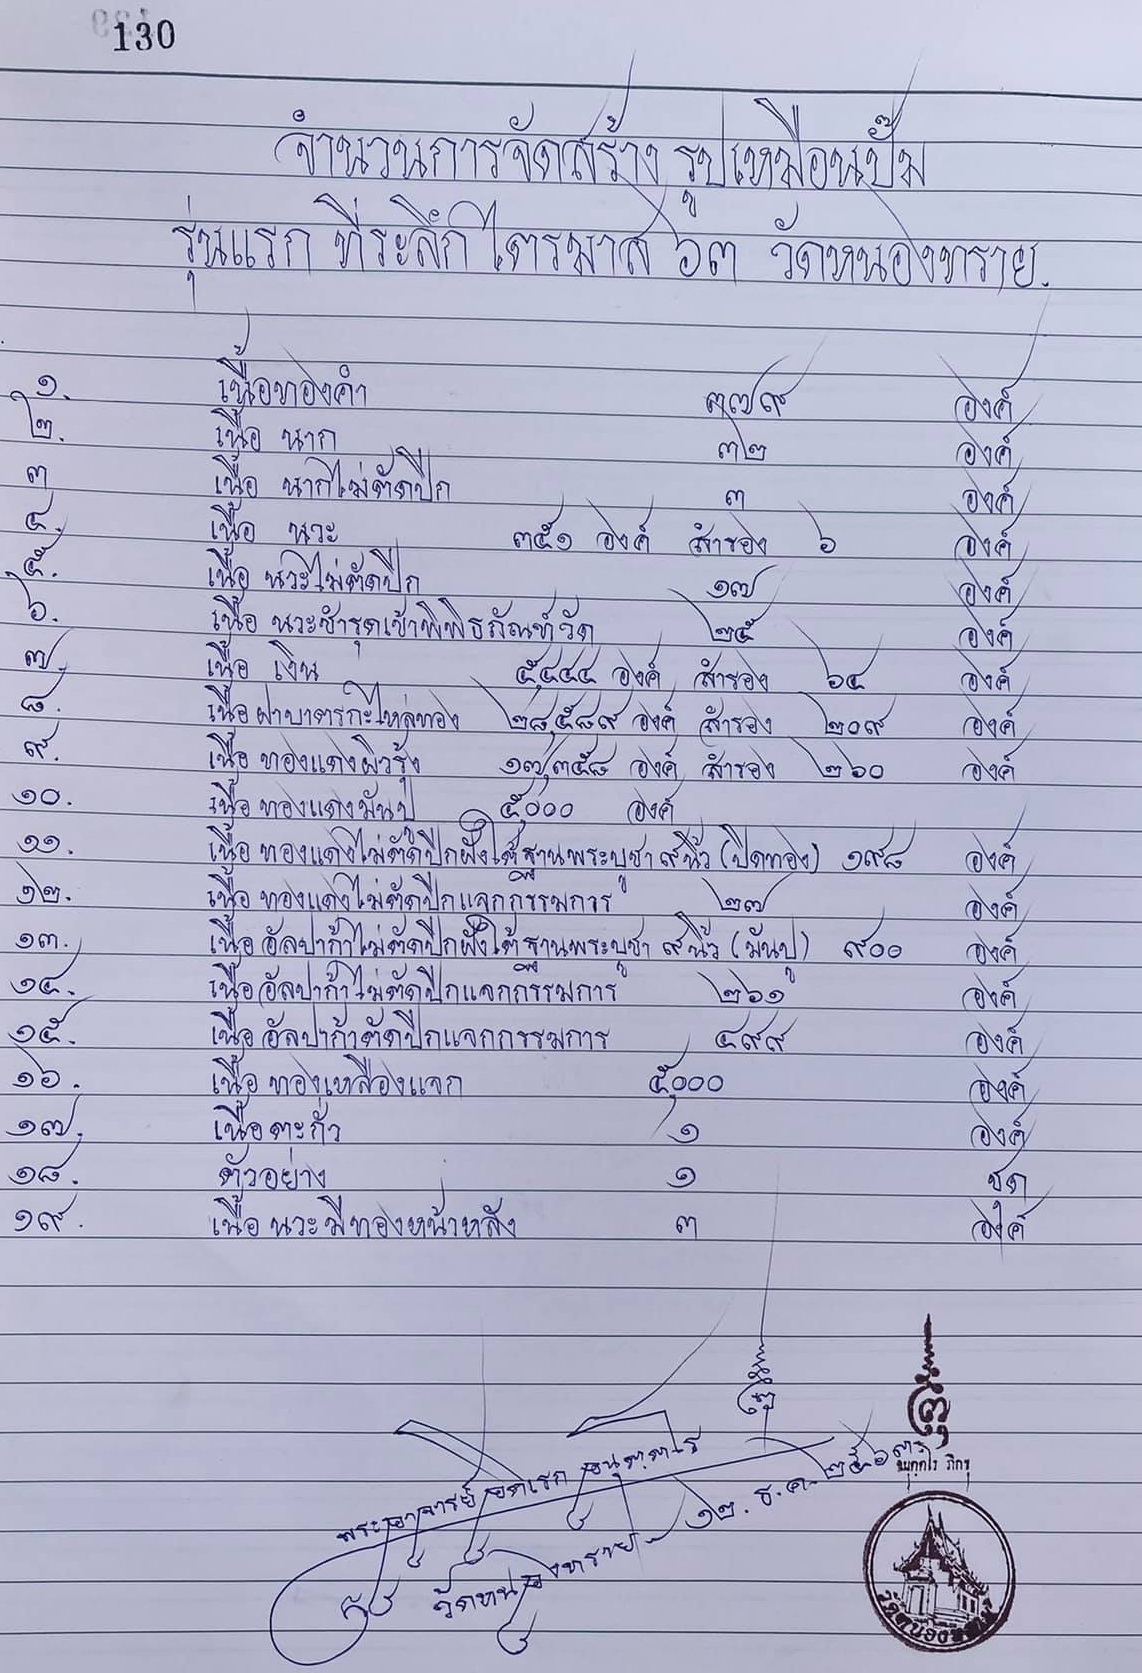 130
จำนวนการจัดสร้าง รูปเหมือนปั๊ม
รุ่นแรก ที่ระลึก ไตรมาส ๖๓ วัดหนองทราย.
๑. เนื้อทองคำ ๓๗๙ องค์
๒. เนื้อ นาก ๓๒ องค์
๓ เนื้อ นากไม่ตัดปีก ๓ องค์
๔. เนื้อ นวะ ๓๕๑ องค์ สำรอง ๖ องค์
๕. เนื้อ นวะไม่ตัดปีก ๑๗ องค์
๖. เนื้อ นวะชำรุดเข้าพิพิธภัณฑ์วัด ๒๕ องค์
๗. เนื้อ เงิน ๕,๔๔๔ องค์ สำรอง ๖๔ องค์
๘. เนื้อ ฝาบาตรกะไหล่ทอง ๒๘,๕๘๙ องค์ สำรอง ๒๐๙ องค์
๙. เนื้อ ทองแดงผิวรุ้ง ๑๗,๓๕๘ องค์ สำรอง ๒๖๐ องค์
๑๐. เนื้อ ทองแดงมันปู ๕,๐๐๐ องค์
๑๑. เนื้อ ทองแดงไม่ตัดปีกฝังใต้ฐานพระบูชา ๙ นิ้ว (ปิดทอง) ๑๙๘ องค์
๑๒. เนื้อ ทองแดงไม่ตัดปีกแจกกรรมการ ๒๗ องค์
๑๓. เนื้อ อัลปาก้าไม่ตัดปีกฝังใต้ฐานพระบูชา ๙ นิ้ว (มันปู) ๙๐๐ องค์
๑๔. เนื้อ อัลปาก้าไม่ตัดปีกแจกกรรมการ ๒๖๑ องค์
๑๕. เนื้อ อัลปาก้าตัดปีกแจกกรรมการ ๔๙๙ องค์
๑๖. เนื้อ ทองเหลืองแจก ๕,๐๐๐ องค์
๑๗. เนื้อ ตะกั่ว ๑ องค์
๑๘. ตัวอย่าง ๑ ชุด
๑๙. เนื้อ นวะมีทองหน้าหลัง ๓ องค์
พระอาจารย์
วัดหนองทราย ๑๒. ธ.ค. ๒๕๖๓
ภิกขุ
วัดหนองทราย